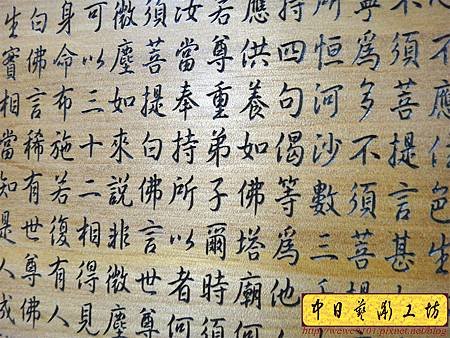 不應住色生
不須菩提言甚
寧為多不須菩提
所恒河沙數三
持四句偈等為他人
應供養如佛塔廟何
若尊重弟子爾時須
汝當奉持所以者何
須菩提白佛言世尊
微塵如來說非微塵
可以三十二相得見
身命布施若復有人
白佛言稀有世尊佛
生實相當知是人成
中日藝工坊
http://wewe0101.pixnet.net/blog